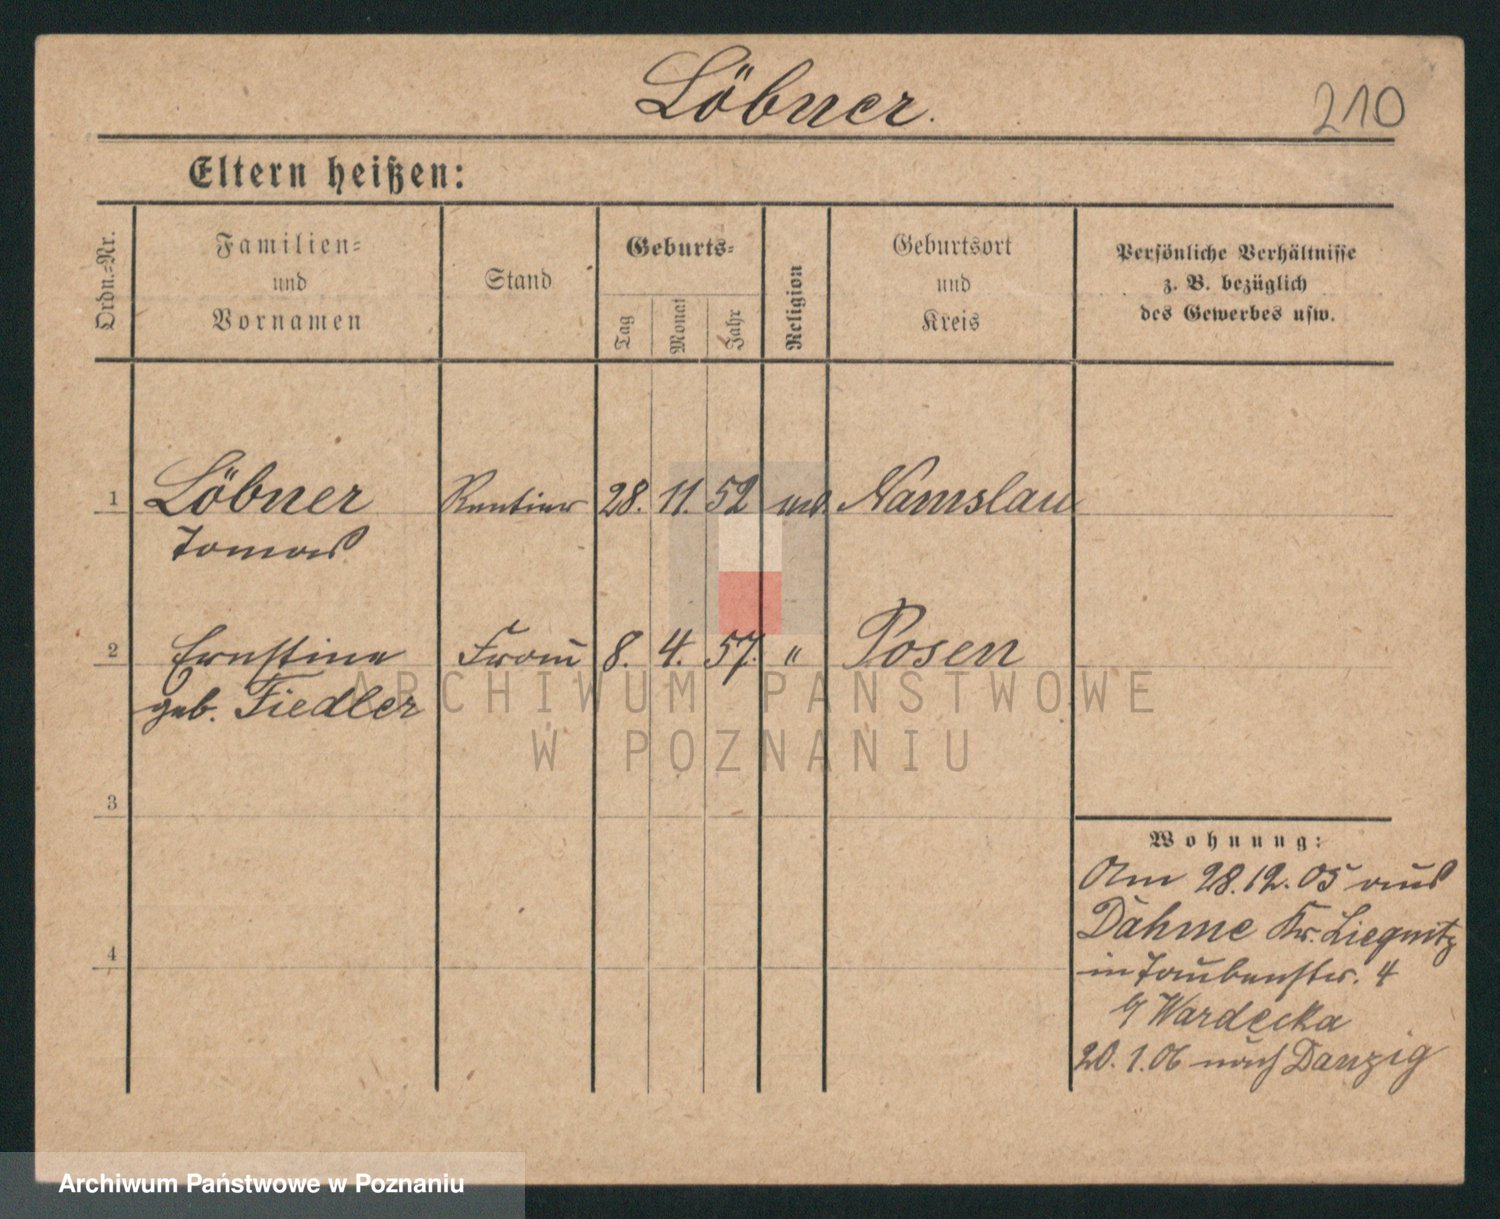 Löbner.
210
Eltern heißen:
Ordn.-Nr.
Familien-
und
Vornamen
Stand
Geburts-
Tag
Monat
Jahr
Religion
Geburtsort
und
Kreis
Persönliche Verhältnisse
z. B. bezüglich
des Gewerbes usw.
1 Löbner Rentier 28. 11. 52 Namslau
2 Ernstine Frau 8. 4. 57. " Posen
geb. Fiedler
ARCHIWUM PAŃSTWOWE
W POZNANIU
3
Wohnung:
Am 28.12.05 aus
Dahme Kr. Liegnitz
in Taubenstr. 4
b/ Wardecka
20. 1. 06 nach Danzig
4
Archiwum Państwowe w Poznaniu